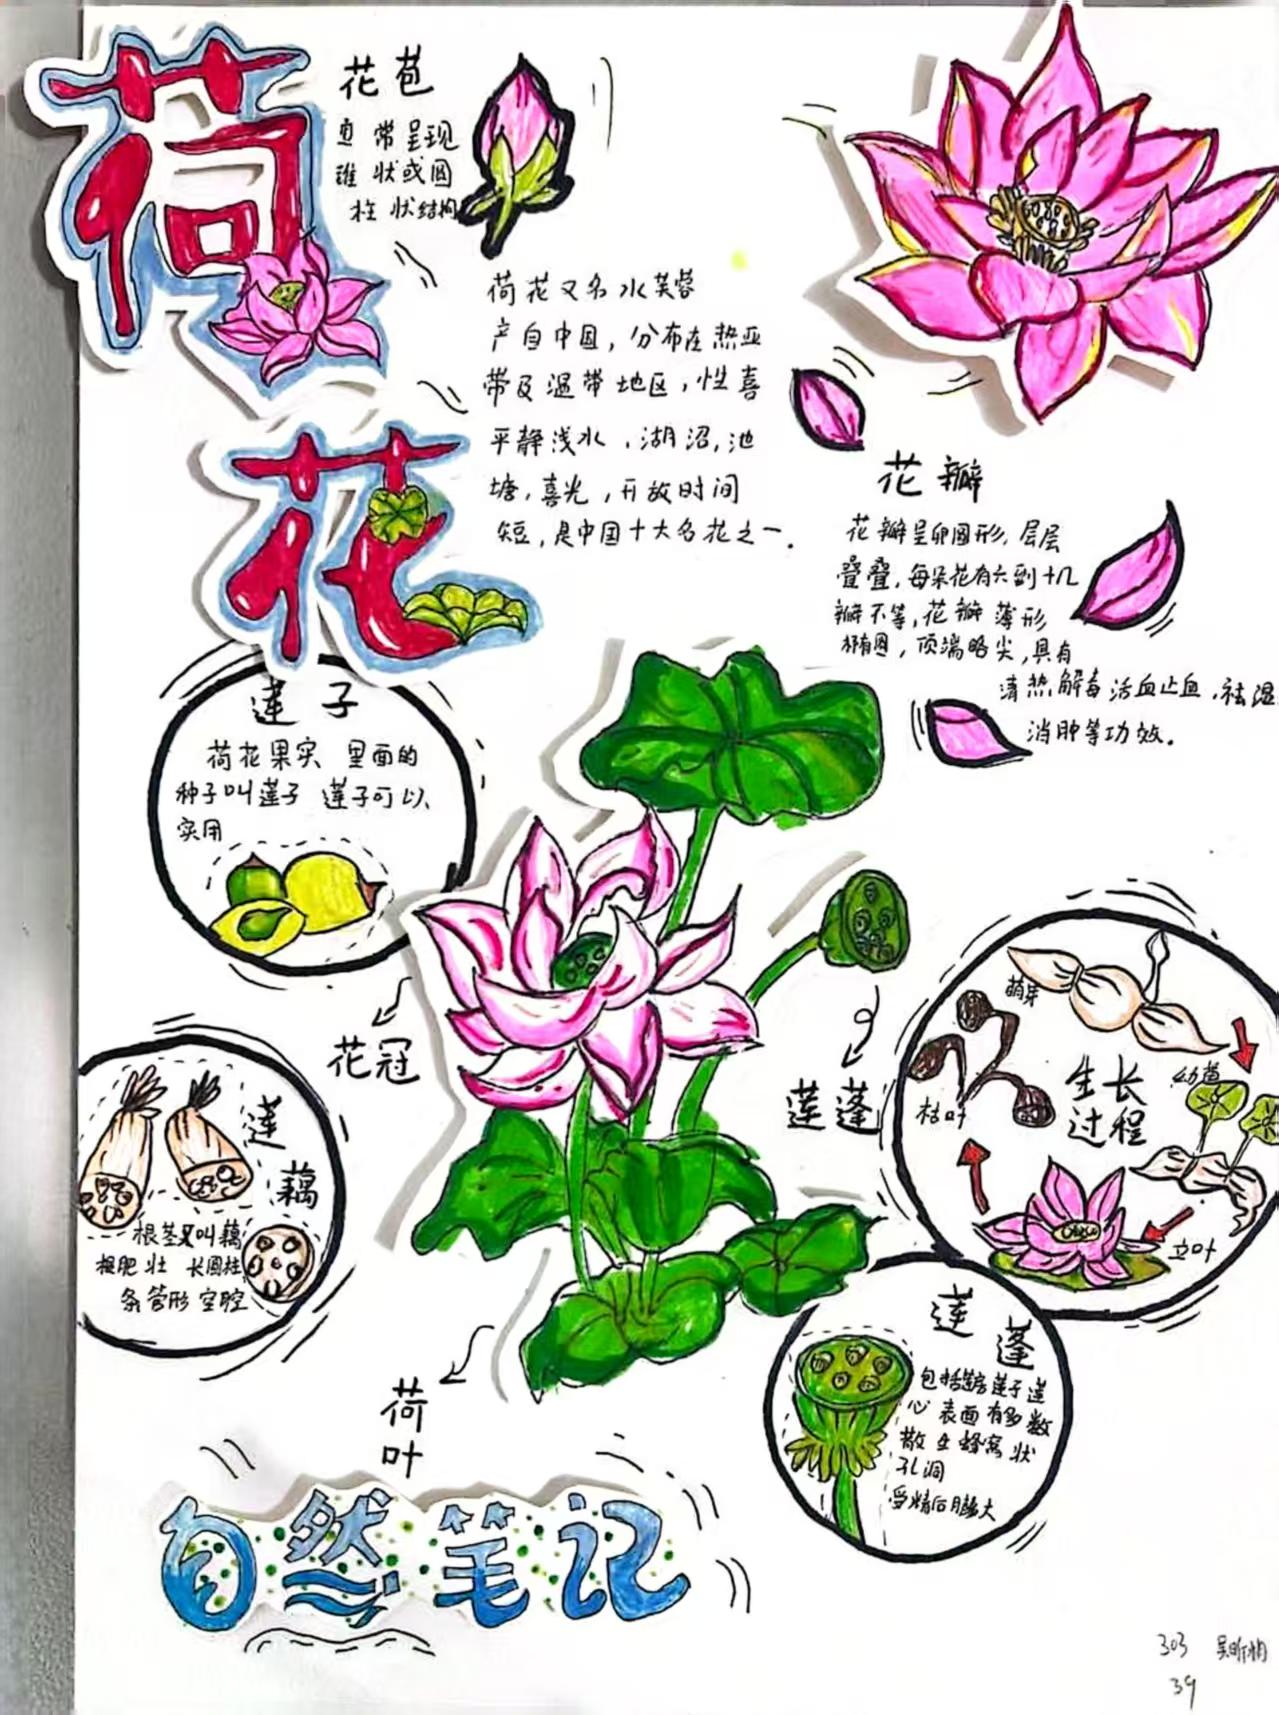 荷
花
花苞
通常呈现
锥状或圆
柱状结构
荷花又名水芙蓉
产自中国，分布在热亚
带及温带地区，性喜
平静浅水，湖沼，池
塘，喜光，开放时间
短，是中国十大名花之一.
花瓣
花瓣呈卵圆形，层层
叠叠，每朵花有六到十几
瓣不等，花瓣薄形
椭圆，顶端略尖，具有
清热解毒活血止血，祛湿
消肿等功效.
莲子
荷花果实 里面的
种子叫莲子 莲子可以
实用
花冠
莲蓬
莲
藕
根茎又叫藕
粗肥壮 长圆柱
条管形空腔
生长
过程
萌芽
幼苗
立叶
枯叶
莲
蓬
包括莲房莲子莲
心 表面有多数
散生蜂窝状
孔洞
受精后膨大
荷
叶
自然笔记
303
39